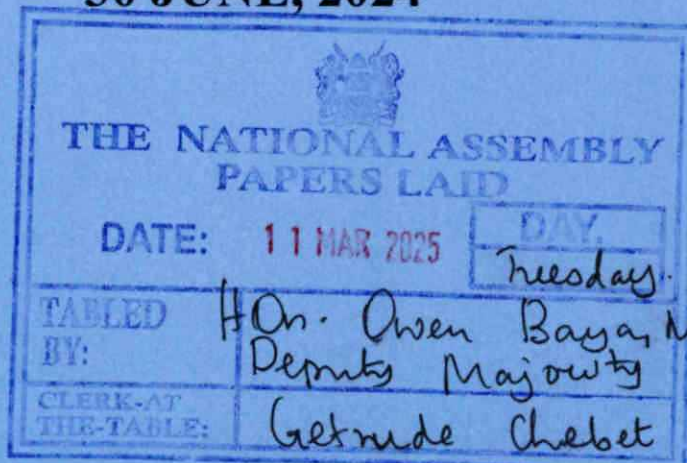 30 JUNE, 2024
THE NATIONAL ASSEMBLY
PAPERS LAID
DATE: 11 MAR 2025
DAY.
Tuesday.
TABLED BY: Hon. Owen Baya, M
Deputy Majority
CLERK-AT THE-TABLE: Getrude Chebet